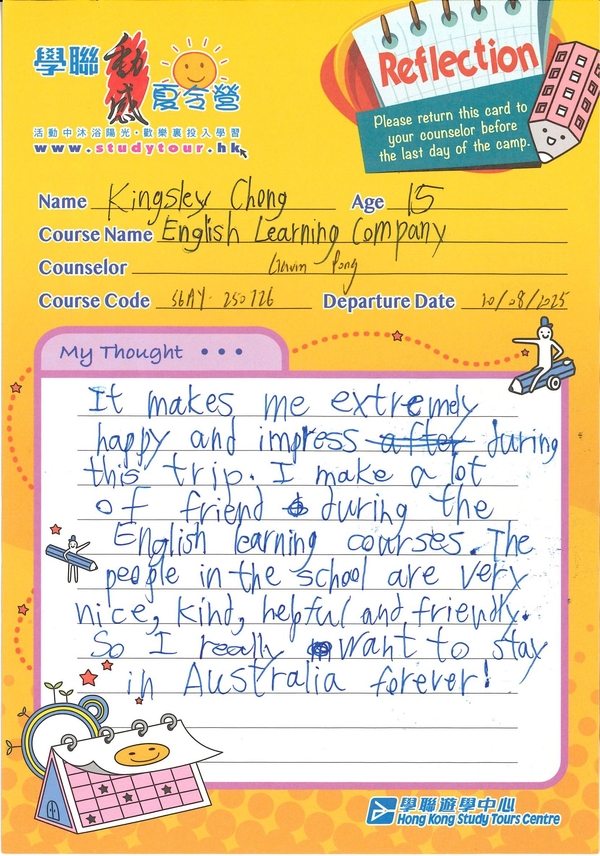 學聯 動感 夏令營
活動中沐浴陽光・歡樂裏投入學習
www.studytour.hk
Reflection
Please return this card to
your counselor before
the last day of the camp.
Name Kingsley Chong Age 15
Course Name English Learning Company
Counselor Pong
Course Code Departure Date /08/2025
My Thought • • •
It makes me extremely
happy and impress after during
this trip. I make a lot
of friend during the
English learning courses. The
people in the school are very
nice, kind, helpful and friendly.
So I really want to stay
in Australia forever!
學聯遊學中心
Hong Kong Study Tours Centre